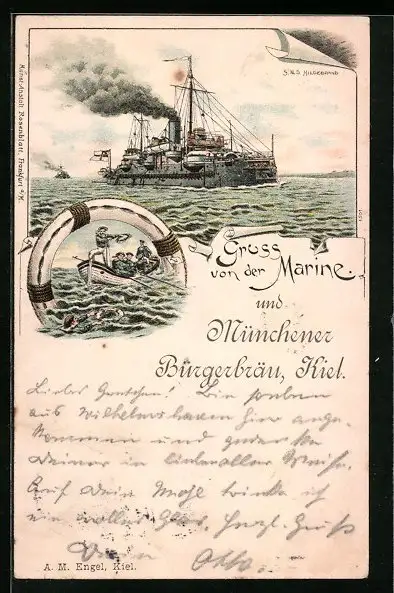 S.M.S. HILDEBRAND
Kunst-Anstalt Rosenblatt, Frankfurt a/M.
Gruss
von der Marine.
und
Münchener
Bürgerbräu, Kiel.
Liebes Gretchen! Bin soeben
aus Wilhelmshaven hier ange-
kommen und gedenke
Deiner in liebevoller Weise.
Auf Dein Wohl trinke ich
ein volles Glas. Herzl. Gruß
Dein Otto.
A. M. Engel, Kiel.